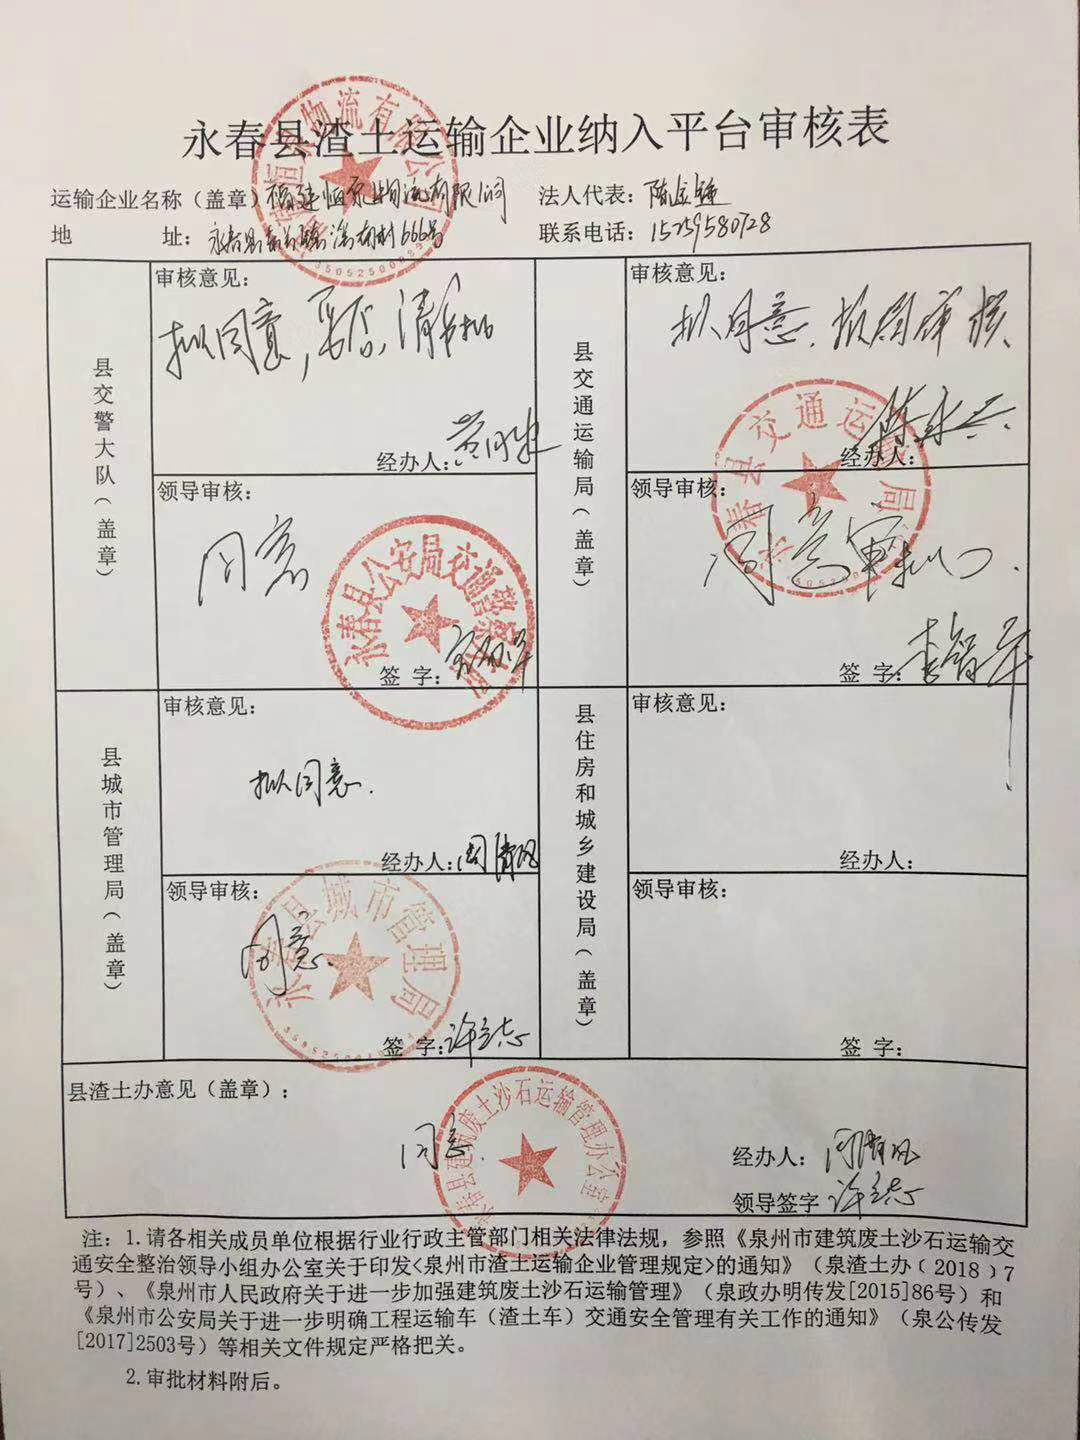 永春县渣土运输企业纳入平台审核表
运输企业名称（盖章）福建恒源物流有限公司 法人代表：陈金鍾
地 址：永春县 村666号 联系电话：15259580728
县交警大队（盖章）
审核意见：
拟同意，妥否，请审批
经办人：
领导审核：
同意
永春县公安局交通警察大队
签 字：
县交通运输局（盖章）
审核意见：
拟同意，报领导审核
经办人：陈永兴
领导审核：
永春县交通运输局
同意审批
签 字：李智军
县城市管理局（盖章）
审核意见：
拟同意.
经办人：周清风
领导审核：
同意.
永春县城市管理局
签 字：许志志
县住房和城乡建设局（盖章）
审核意见：
经办人：
领导审核：
签 字：
县渣土办意见（盖章）：
同意.
永春县建筑废土沙石运输管理办公室
经办人：周清风
领导签字
注：1.请各相关成员单位根据行业行政主管部门相关法律法规，参照《泉州市建筑废土沙石运输交
通安全整治领导小组办公室关于印发<泉州市渣土运输企业管理规定>的通知》（泉渣土办﹝2018﹞7
号）、《泉州市人民政府关于进一步加强建筑废土沙石运输管理》（泉政办明传发[2015]86号）和
《泉州市公安局关于进一步明确工程运输车（渣土车）交通安全管理有关工作的通知》（泉公传发
[2017]2503号）等相关文件规定严格把关。
2.审批材料附后。